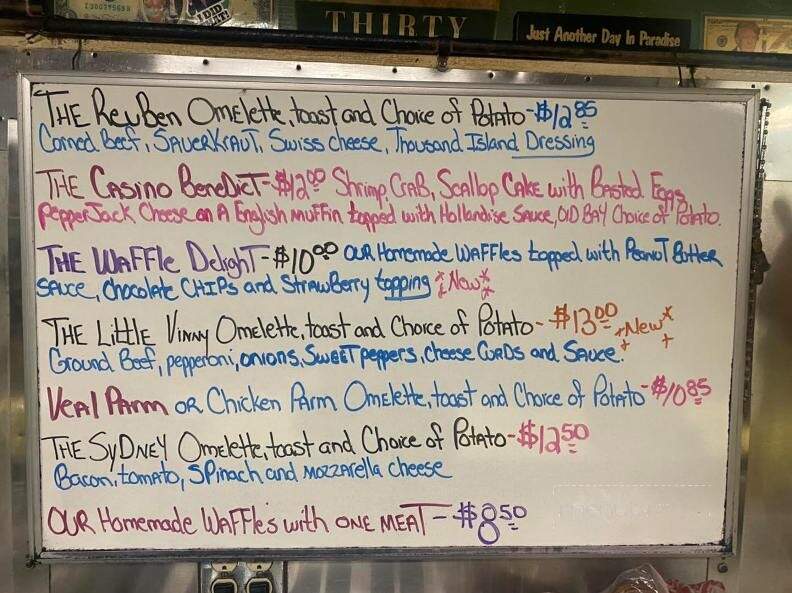 I DID THAT!
THIRTY
Just Another Day In Paradise
THE ReuBen Omelette, toast and Choice of Potato - $12.85
Corned Beef, SAUERKRAUT, Swiss cheese, Thousand Island Dressing
THE CASINO BENEDICT - $12.00 Shrimp, CRAB, SCALLOP CAKE with Basted Eggs
PEPPER JACK Cheese on A English MUFFIN topped with Hollandise Sauce, OLD BAY Choice of Potato.
THE WAFFle DeligHT - $10.00 OUR Homemade WAFFles topped with PEANUT Butter
SAUCE, chocolate CHIPS and STRAWBerry topping *New*
THE LittLe VINNY Omelette, toast and Choice of Potato - $13.00 *New*
Ground Beef, pepperoni, onions, SWEET peppers, cheese CURDS and SAUCE.
VEAL PARM OR Chicken PARM OmElette, toast and Choice of Potato - $10.85
THE SYDNEY Omelette, toast and Choice of Potato - $12.50
Bacon, tomato, SPinach and MOZZARella cheese
OUR Homemade WAFFles with ONE MEAT - $8.50